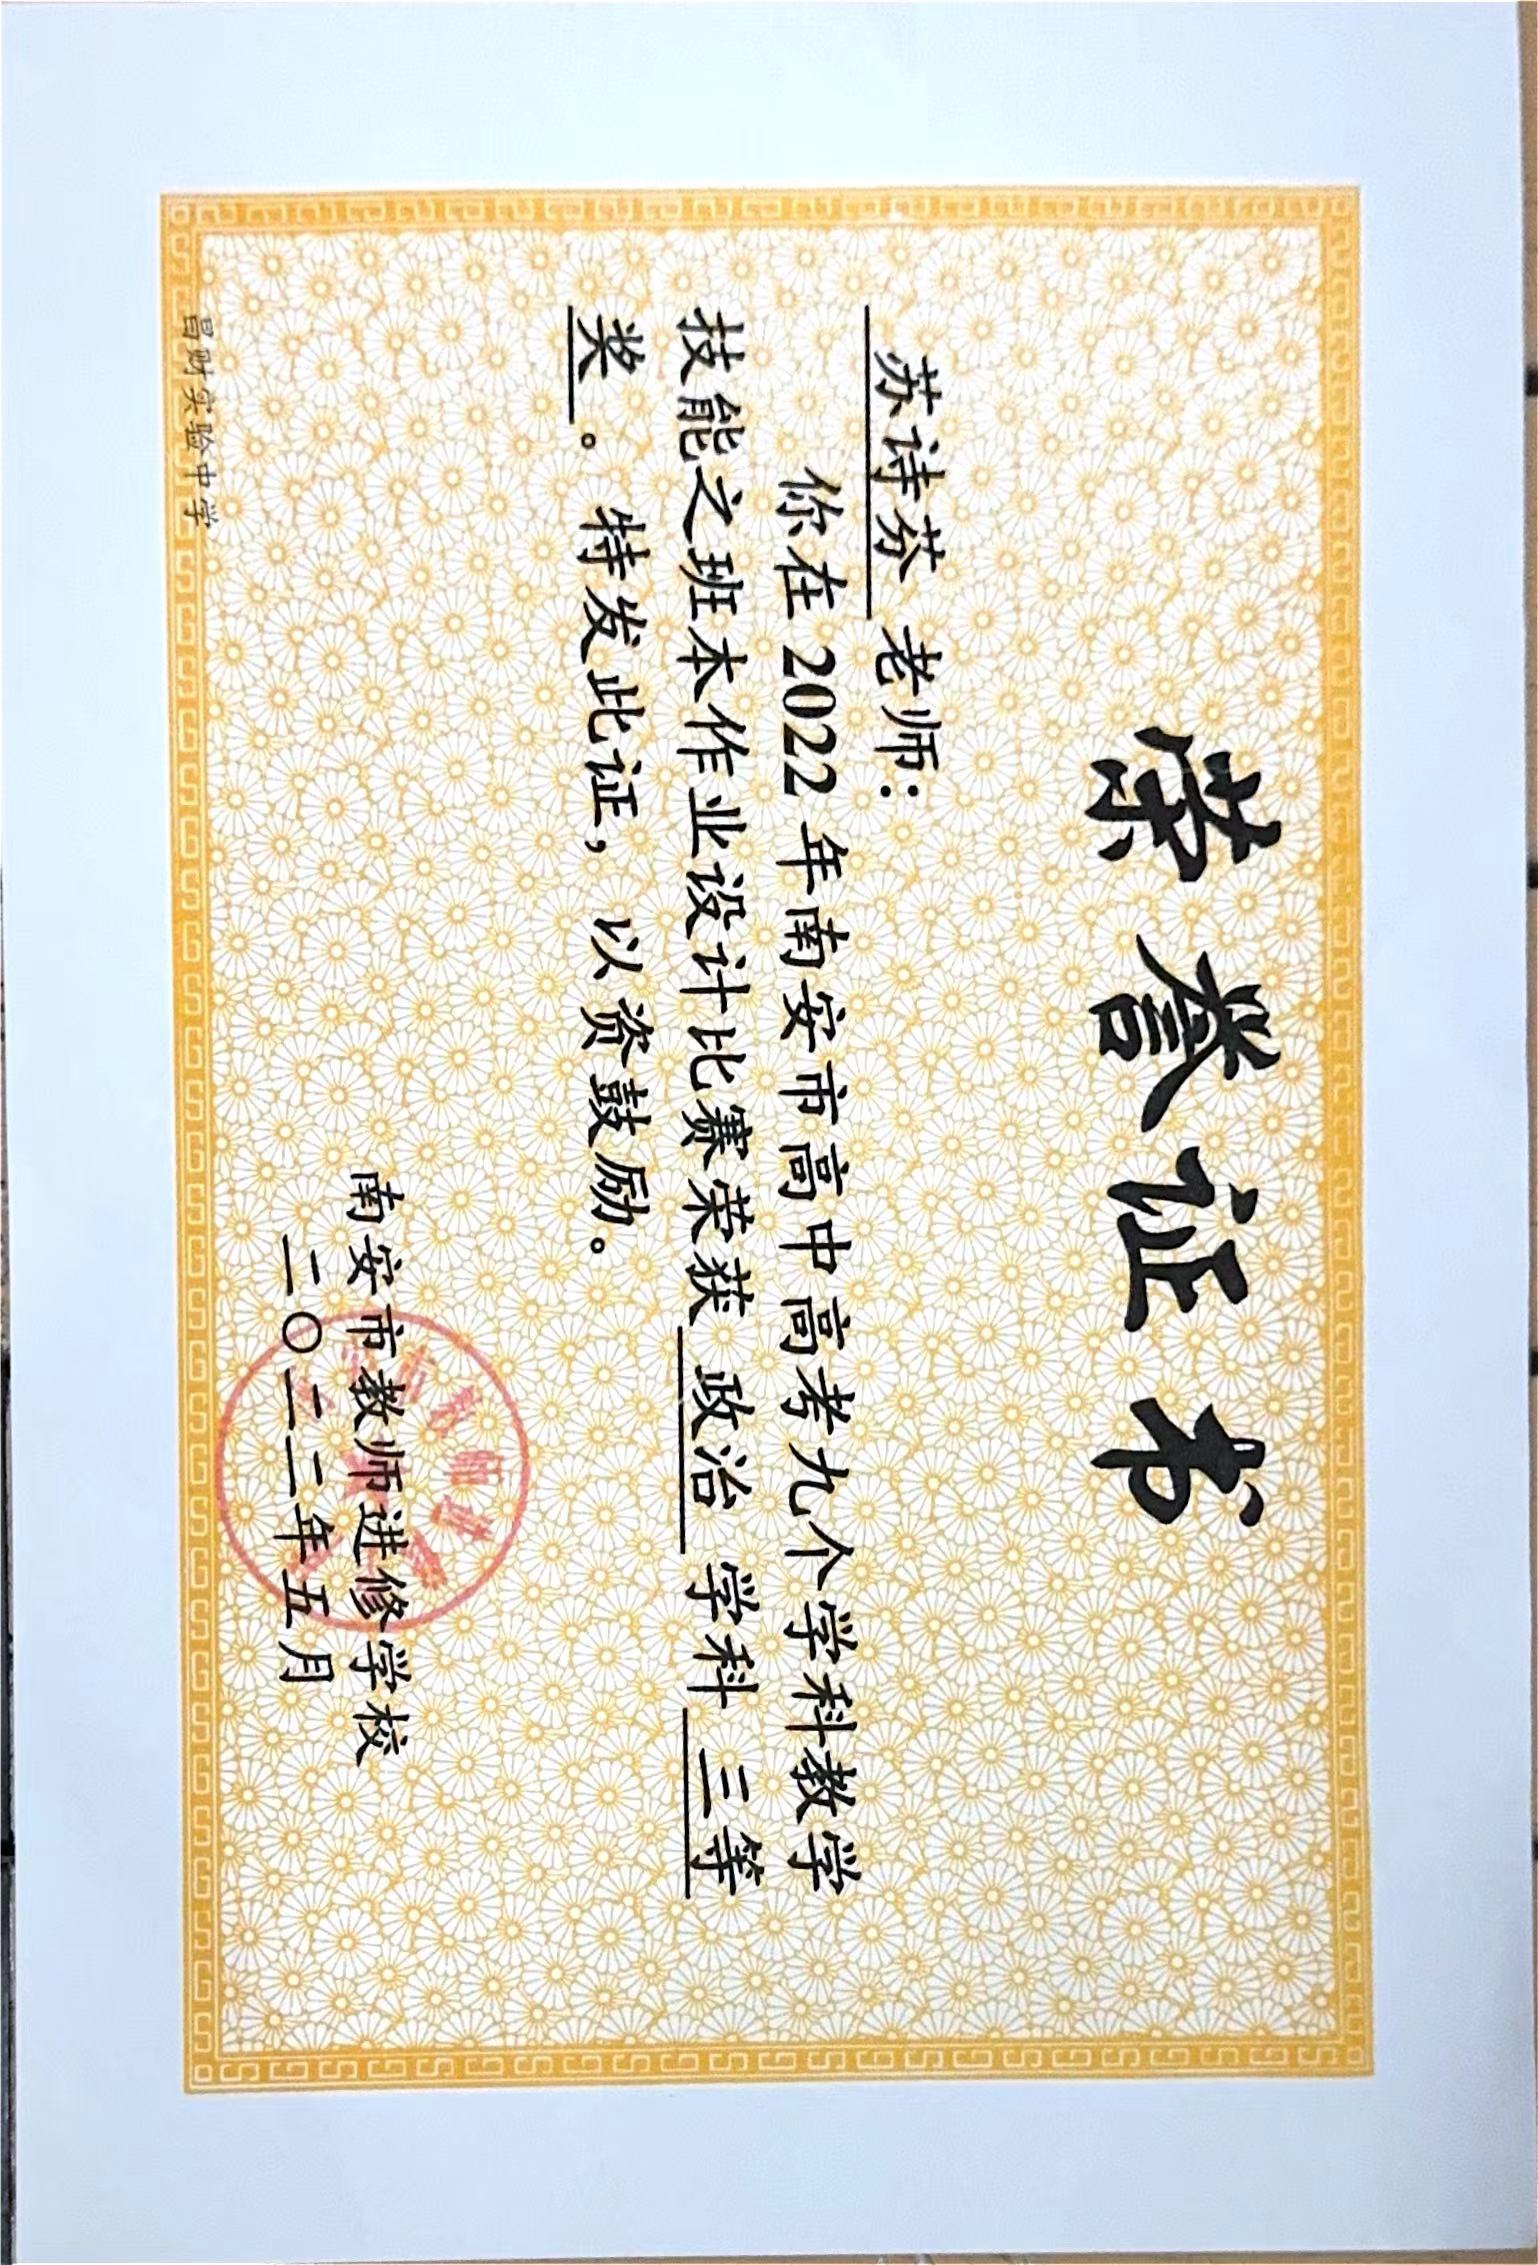 荣誉证书
苏诗芬 老师：
你在 2022 年南安市高中高考九个学科教学
技能之班本作业设计比赛荣获 政治 学科 三等
奖 。特发此证，以资鼓励。
南安市教师进修学校
二〇二二年五月
冒财实验中学